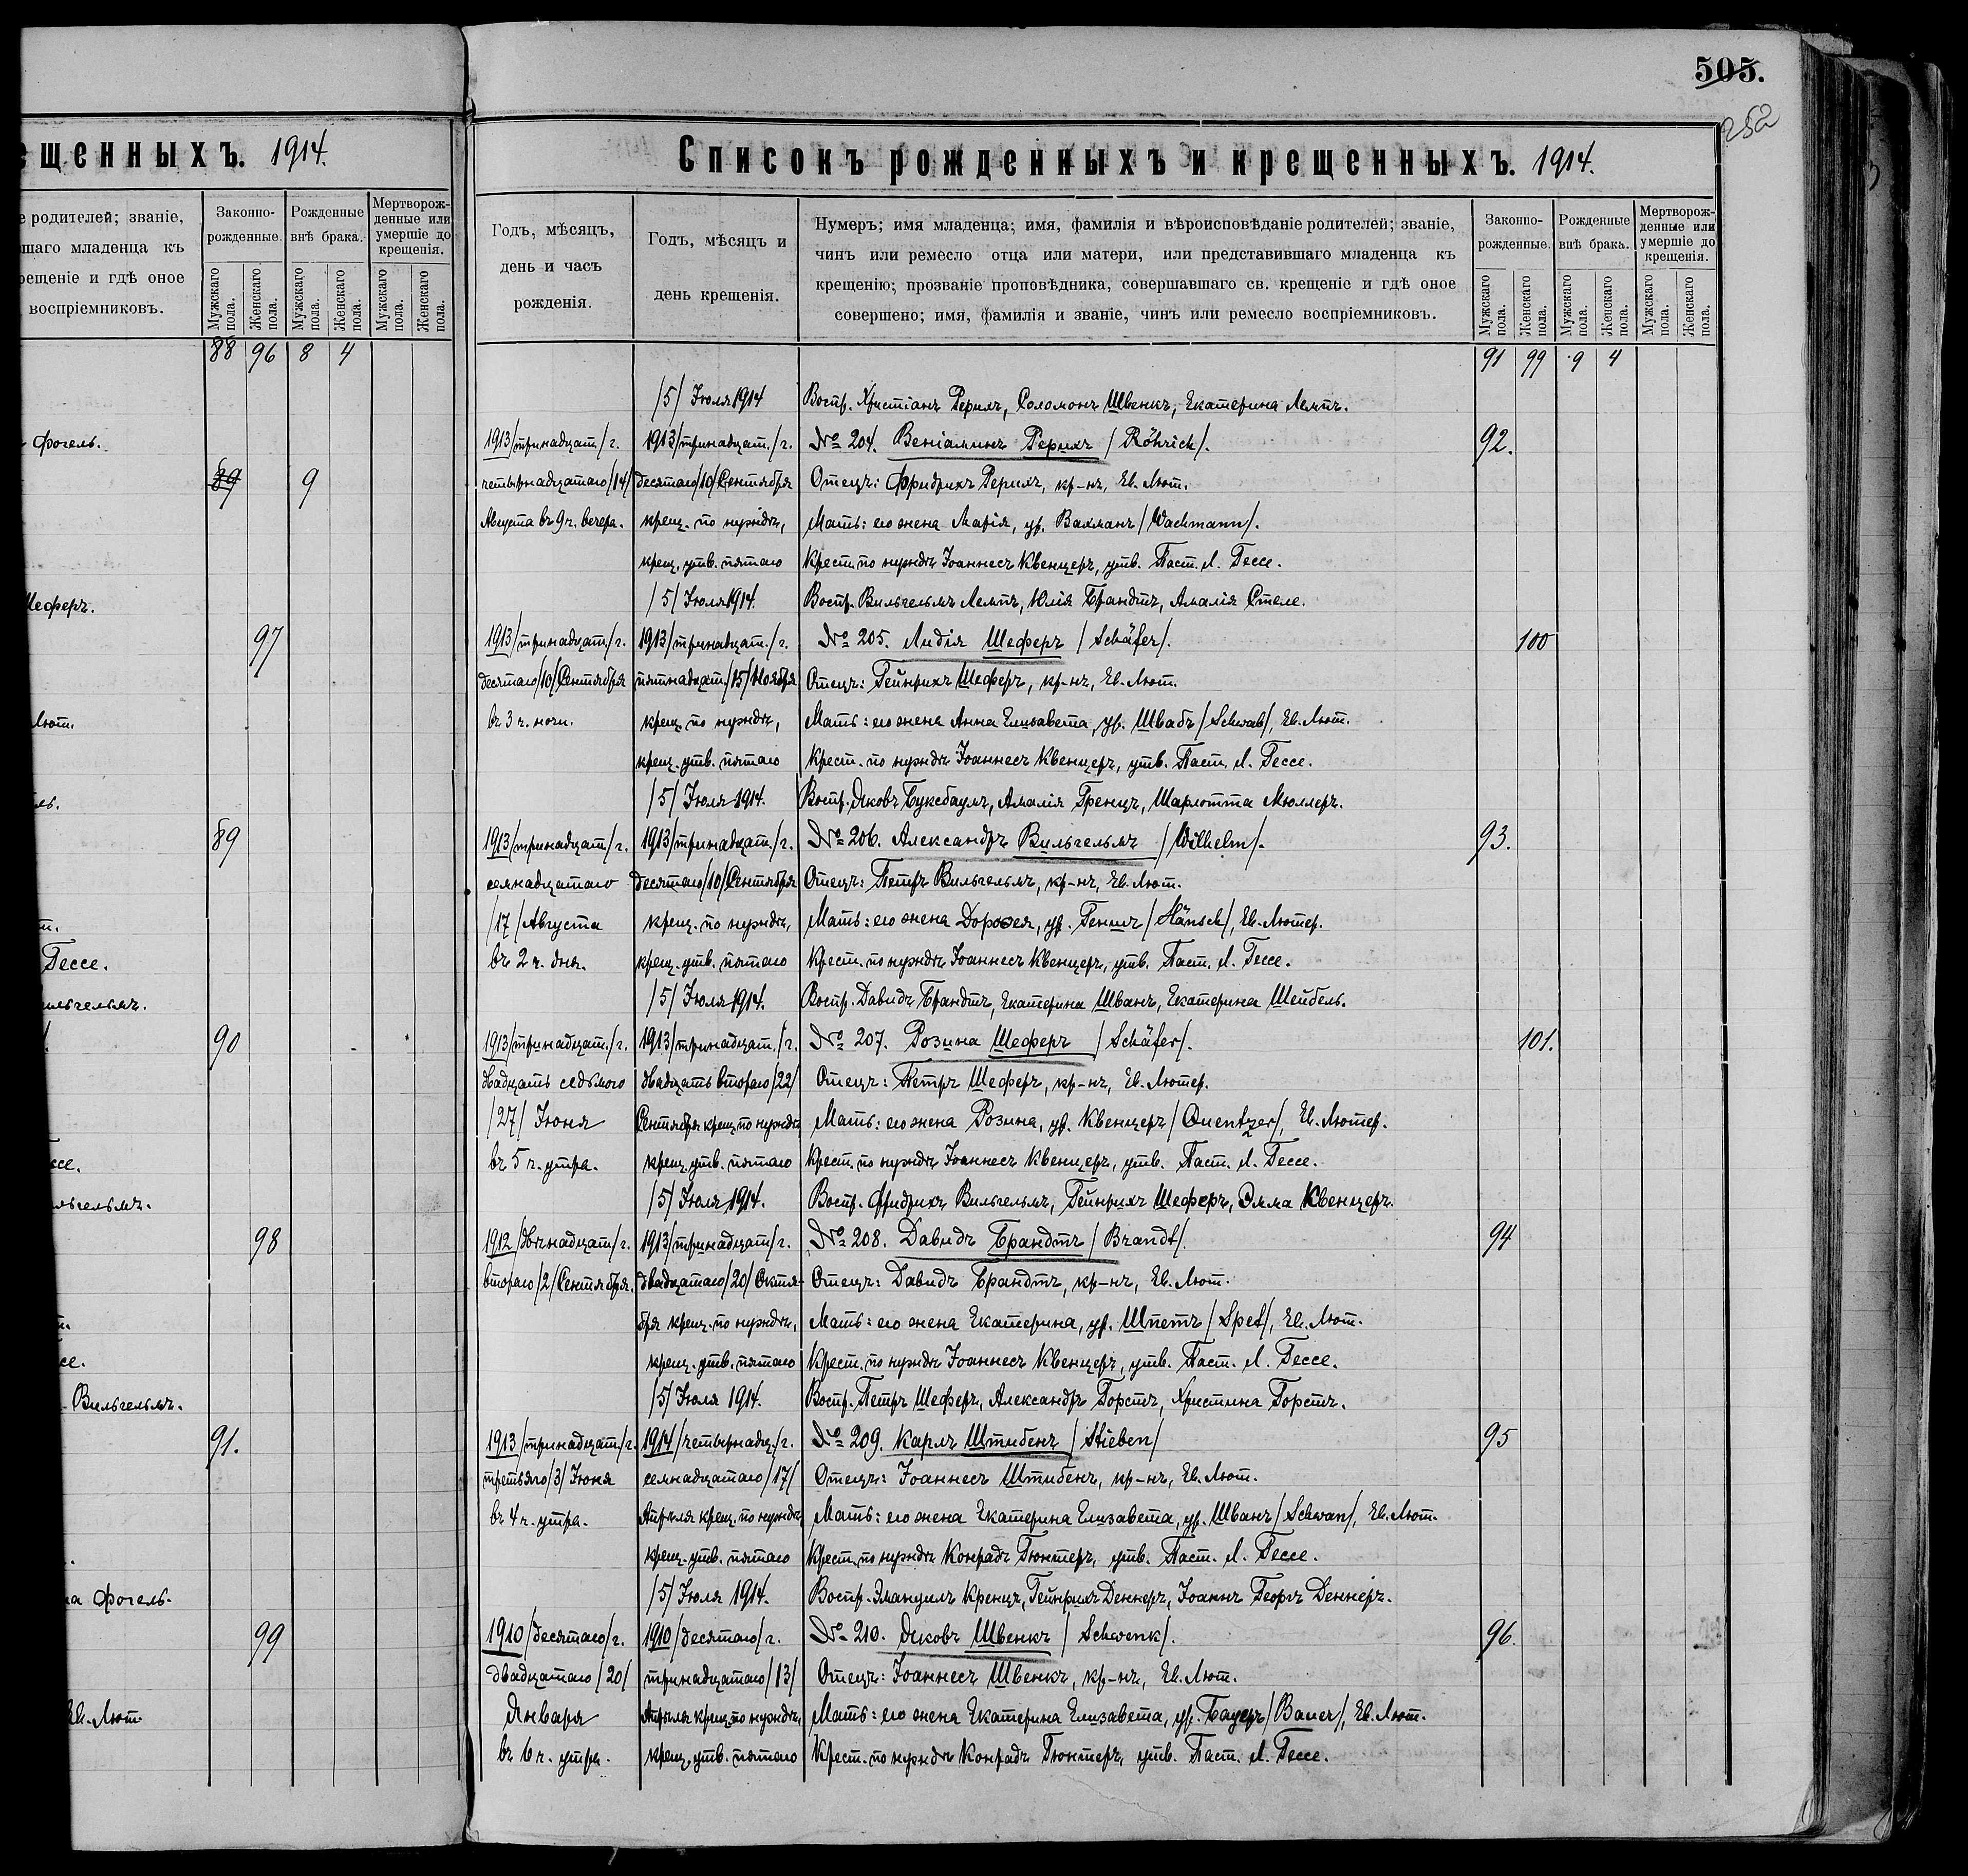 ещенныхъ. 1914.
е родителей; званіе,
шаго младенца къ
рещеніе и гдѣ оное
воспріемниковъ.
Законно-
рожденные.
Рожденные
внѣ брака.
Мертворож-
денные или
умершіе до
крещенія.
Мужскаго пола.
Женскаго пола.
Мужскаго пола.
Женскаго пола.
Мужскаго пола.
Женскаго пола.
88 96 8 4
Фогель.
89 9
Шеферъ.
97
Лют.
89
Гессе.
ильгельмъ.
90
ссе.
льгельмъ.
98
Вильгельмъ.
91.
на Фогель.
99
Ев. Лют
505.
252
Списокъ рожденныхъ и крещенныхъ. 1914.
Годъ, мѣсяцъ,
день и часъ
рожденія.
Годъ, мѣсяцъ и
день крещенія.
Нумеръ; имя младенца; имя, фамилія и вѣроисповѣданіе родителей; званіе,
чинъ или ремесло отца или матери, или представившаго младенца къ
крещенію; прозваніе проповѣдника, совершавшаго св. крещеніе и гдѣ оное
совершено; имя, фамилія и званіе, чинъ или ремесло воспріемниковъ.
Законно-
рожденные.
Рожденные
внѣ брака.
Мертворож-
денные или
умершіе до
крещенія.
Мужскаго пола.
Женскаго пола.
Мужскаго пола.
Женскаго пола.
Мужскаго пола.
Женскаго пола.
91 99 9 4
/5/ Іюля 1914 Воспр. Христіанъ Рерихъ, Соломонъ Швенкъ, Екатерина Лемпъ.
1913/тринадцат/г. 1913/тринадцат./г. № 204. Веніаминъ Рерихъ /Röhrich/. 92.
четырнадцатаго/14/ десятаго/10/Сентября Отецъ: Фридрихъ Рерихъ, кр-нъ, Ев. Лют.
Августа въ 9 ч. вечера. крещ. по нуждѣ, Мать: его жена Марія, ур. Вахманъ /Wachmann/.
крещ. утв. пятаго Крест. по нуждѣ Іоаннесъ Квенцеръ, утв. Паст. Л. Гессе.
/5/ Іюля 1914. Воспр. Вильгельмъ Лемпъ, Юлія Брандтъ, Амалія Стеле.
1913/тринадцат./г. 1913/тринадцат./г. № 205. Лидія Шеферъ /Schäfer/. 100
десятаго/10/Сентября пятнадцат/15/Ноября Отецъ: Гейнрихъ Шеферъ, кр-нъ, Ев. Лют.
въ 3 ч. ночи. крещ. по нуждѣ, Мать: его жена Анна Елизавета, ур. Швабъ /Schwab/, Ев. Лют.
крещ. утв. пятаго Крест. по нуждѣ Іоаннесъ Квенцеръ, утв. Паст. Л. Гессе.
/5/ Іюля 1914. Воспр. Яковъ Буксбаумъ, Амалія Гренцъ, Шарлотта Мюллеръ.
1913/тринадцат/г. 1913/тринадцат./г. № 206. Александръ Вильгельмъ /Wilhelm/. 93.
семнадцатаго десятаго/10/Сентября Отецъ: Петръ Вильгельмъ, кр-нъ, Ев. Лют.
/17/ Августа крещ. по нуждѣ, Мать: его жена Доротея, ур. Геншъ /Hänsch/, Ев. Лютер.
въ 2 ч. дня. крещ. утв. пятаго Крест. по нуждѣ Іоаннесъ Квенцеръ, утв. Паст. Л. Гессе.
/5/ Іюля 1914. Воспр. Давидъ Брандтъ, Екатерина Шванъ, Екатерина Шейбель.
1913/тринадцат./г. 1913/тринадцат./г. № 207. Розина Шеферъ /Schäfer/. 101.
двадцать седьмого двадцать второго/22/ Отецъ: Петръ Шеферъ, кр-нъ, Ев. Лютер.
/27/ Іюня Сентября крещ. по нуждѣ Мать: его жена Розина, ур. Квенцеръ /Quentzer/, Ев. Лютер.
въ 5 ч. утра. крещ. утв. пятаго Крест. по нуждѣ Іоаннесъ Квенцеръ, утв. Паст. Л. Гессе.
/5/ Іюля 1914. Воспр. Фридрихъ Вильгельмъ, Гейнрихъ Шеферъ, Эмма Квенцеръ.
1912/двѣнадцат/г. 1913/тринадцат/г. № 208. Давидъ Брандтъ /Brandt/. 94
второго/2/Сентября. двадцатаго/20/Октя- Отецъ: Давидъ Брандтъ, кр-нъ, Ев. Лют.
бря крещ. по нуждѣ, Мать: его жена Екатерина, ур. Шпетъ /Spet/, Ев. Лют.
крещ. утв. пятаго Крест. по нуждѣ Іоаннесъ Квенцеръ, утв. Паст. Л. Гессе.
/5/ Іюля 1914. Воспр. Петръ Шеферъ, Александръ Горстъ, Христина Горстъ.
1913/тринадцат/г. 1914/четырнадц./г. № 209. Карлъ Штибенъ /Stieben/ 95
третьяго/3/Іюня семнадцатаго/17/ Отецъ: Іоаннесъ Штибенъ, кр-нъ, Ев. Лют.
въ 4 ч. утра. Апрѣля крещ. по нуждѣ, Мать: его жена Екатерина Елизавета, ур. Шванъ /Schwan/, Ев. Лют.
крещ. утв. пятаго Крест. по нуждѣ Конрадъ Гюнтеръ, утв. Паст. Л. Гессе.
/5/ Іюля 1914. Воспр. Эмануилъ Кренцъ, Гейнрихъ Деннеръ, Іоаннъ Георгъ Деннеръ.
1910/десятаго/г. 1910/десятаго/г. № 210. Яковъ Швенкъ /Schwenk/. 96.
двадцатаго/20/ тринадцатаго/13/ Отецъ: Іоаннесъ Швенкъ, кр-нъ, Ев. Лют.
Января Апрѣля крещ. по нуждѣ, Мать: его жена Екатерина Елизавета, ур. Бауеръ /Bauer/, Ев. Лют.
въ 6 ч. утра. крещ. утв. пятаго Крест. по нуждѣ Конрадъ Гюнтеръ, утв. Паст. Л. Гессе.